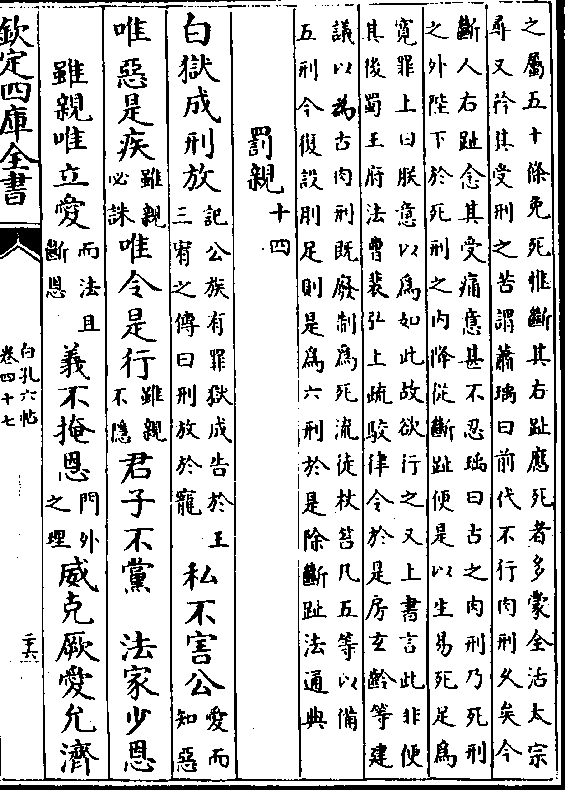 之屬五十條免死惟斷其右趾應死者多蒙全活太宗
尋又矜其受刑之苦謂蕭瑀曰前代不行肉刑久矣今
斷人右趾念其受痛意甚不忍瑀曰古之肉刑乃死刑
之外陛下於死刑之内降從斷趾便是以生易死足為
寛罪上曰朕意以為如此故欲行之又上書言此非便
其後蜀王府法曹裴弘上疏駮律令於是房玄齡等建
議以為古肉刑既廢制為死流徒杖笞凡五等以備
五刑今復設刖足則是為六刑於是除斷趾法通典
罰親十四
白獄成刑放記公族有罪獄成告於王三宥之傳曰刑放於寵私不害公愛而知惡
唯惡是疾雖親必誅唯令是行雖親不隱君子不黨 法家少恩
雖親唯立愛而法且斷恩義不掩恩門外之理威克厥愛允濟
欽定四庫全書
白孔六帖
卷四十七
二十六